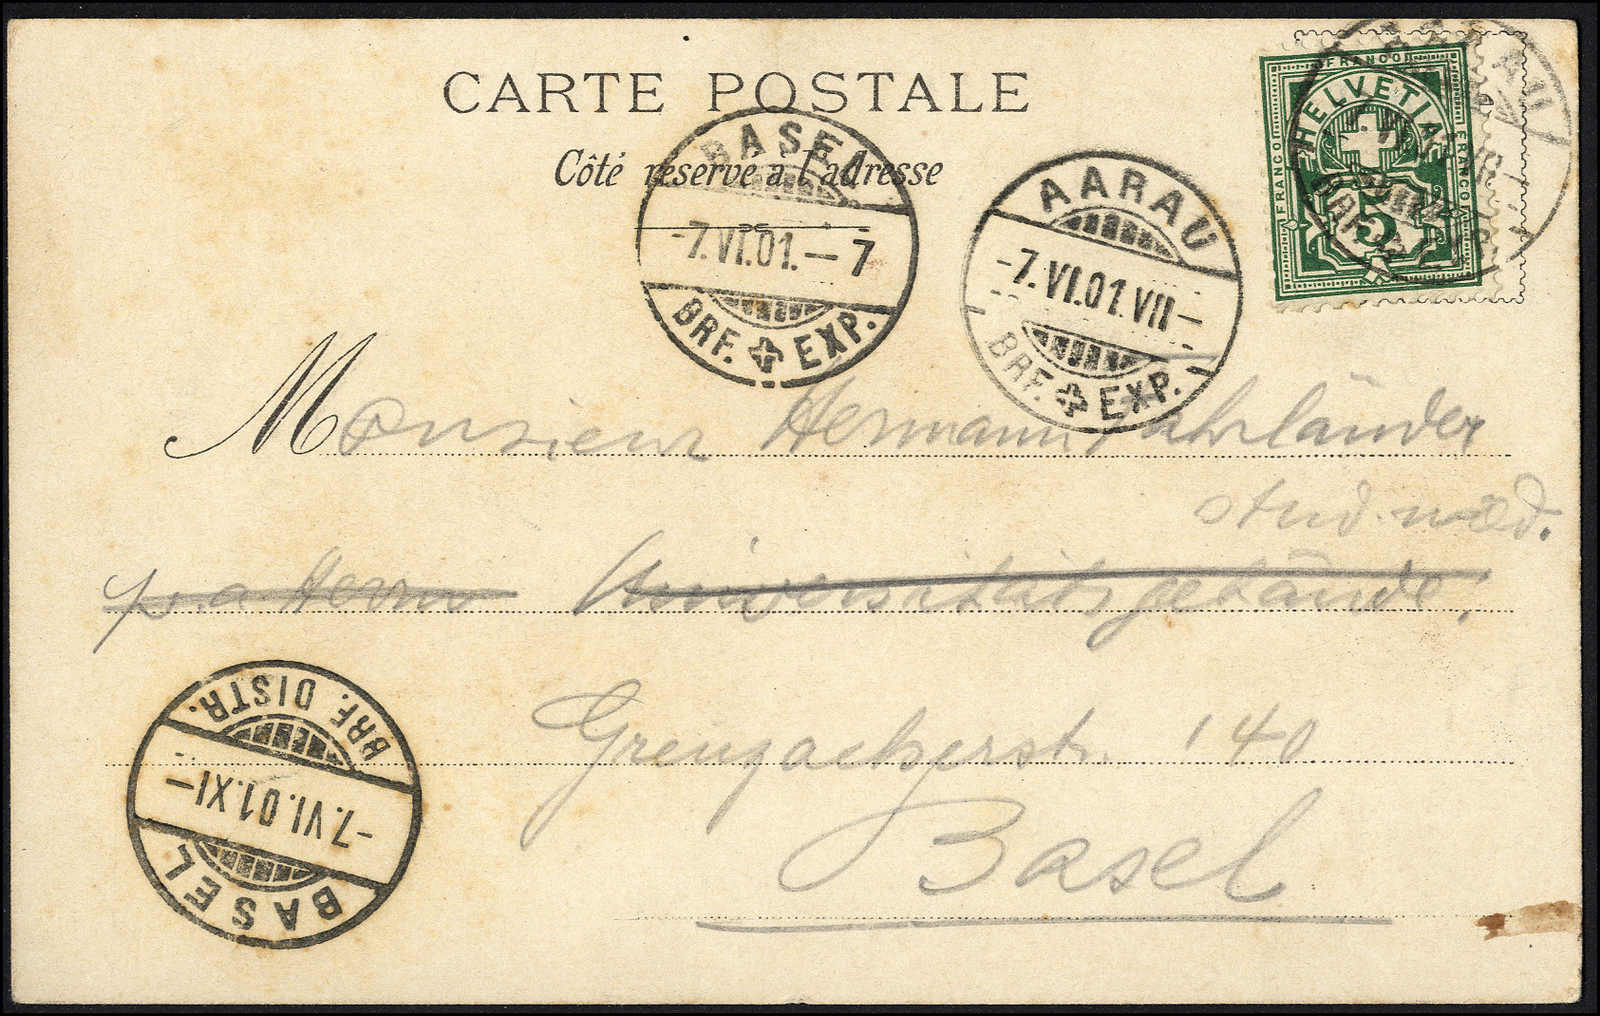 CARTE POSTALE
Côté réservé à l'adresse
FRANCO
HELVETIA
FRANCO
FRANCO
5
AARAU
BASEL
-7. VI. 01. — 7
BRF. EXP.
AARAU
-7. VI. 01. VII —
BRF. EXP.
Monsieur Hermann Fahrländer
stud. med.
p. a. Herrn Universitätsgebäude,
Grenzacherstr. 140
Basel
BASEL
-7. VI. 01. XI —
BRF. DISTR.